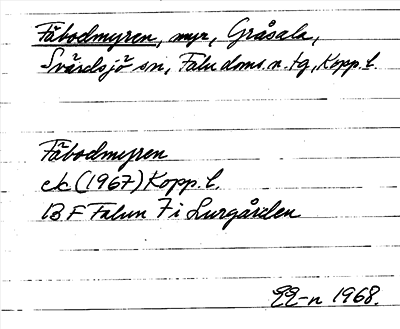 Fäbodmyren, myr, Gråsala,
Svärdsjö sn, Falu doms.n. tg, Kopp. l.
Fäbodmyren
ek (1967) Kopp. l.
13 F Falun 7 i Lurgården
1968.